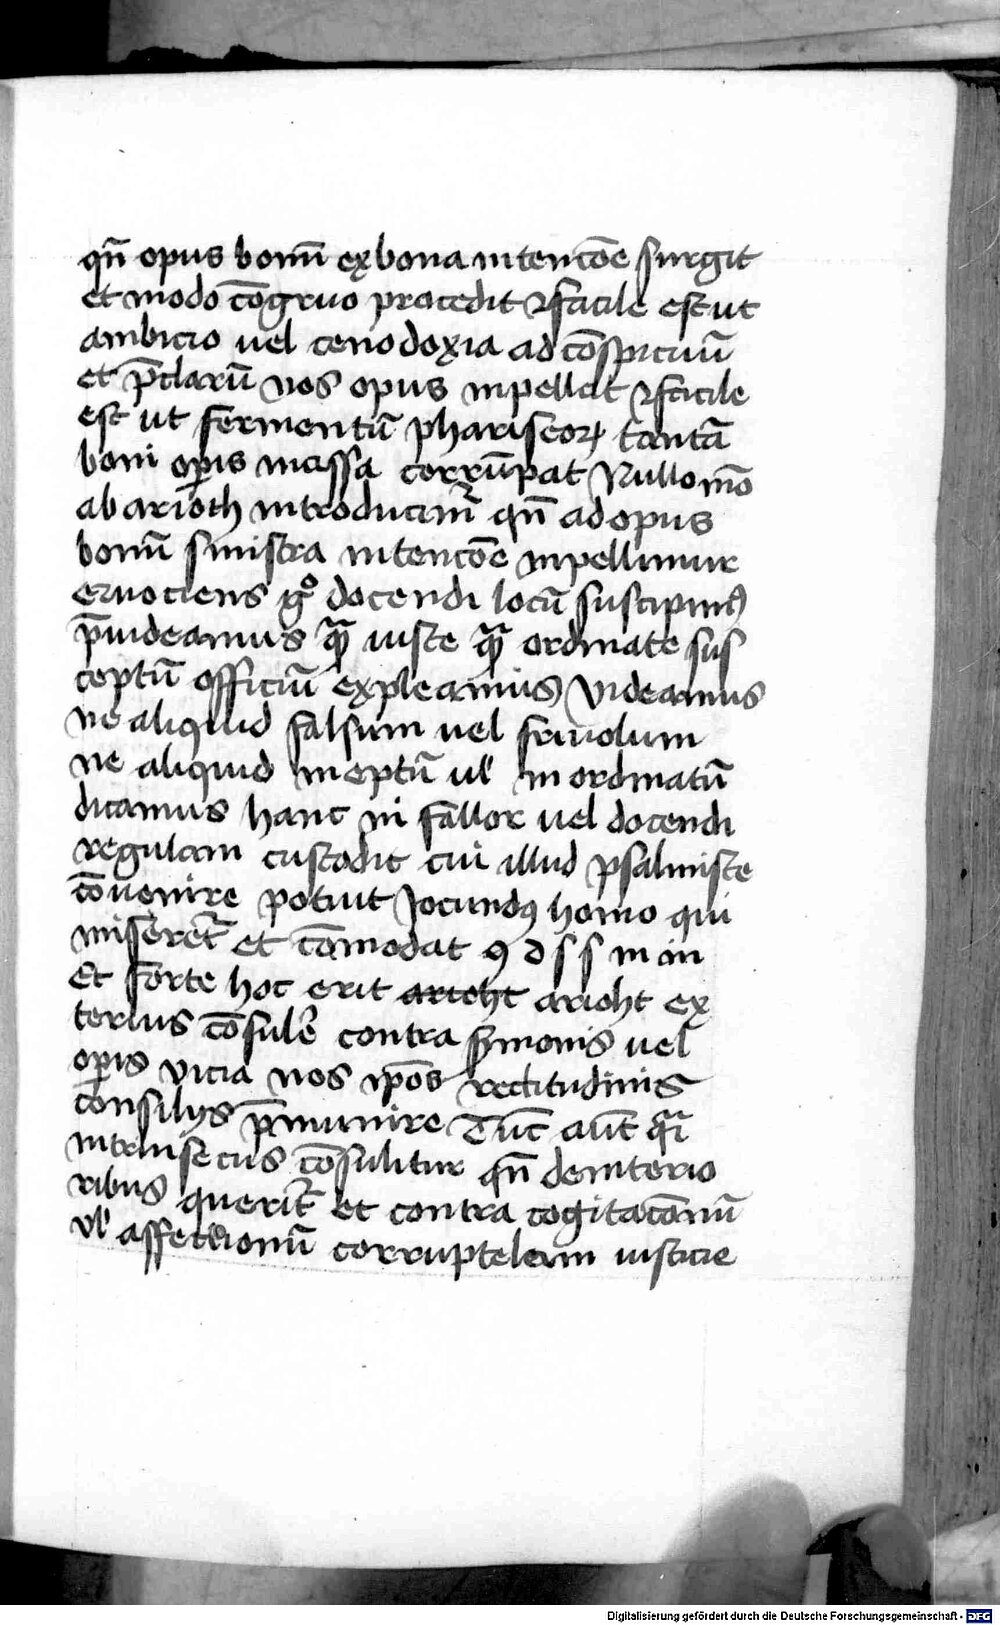 qn̄ opus bonū ex bona intencōe surgit
et modo cōgruo procedit ⁊ facile est ut
ambicio vel cenodoxia ad cōspicuū
et p̄clarū nos opus inpellat ⁊ facile
est ut fermentū phariseoꝝ tantā
boni oꝑis massa corrūpat Nullo mō
ab arioth introducim̄ qn̄ ad opus
bonū sinistra intencōe inpellimur
gͦ docendi locū suscipimꝰ
p̄uideamus qua̅ iuste qua̅ ordinate sus
ceptū officiū expleamus Videamus
ne aliquid falsum vel friuolum
ne aliquid ineptū ul̓ inordinatū
dicamus hanc ni fallor vel docendi
regulam custodit cui illud psalmiste
cōuenire potuit Jocundꝰ homo qui
miseret᷑ et cōmodat ꝯ d s s in iu
Et forte hoc erit arioht arioht ex
terius cōsule᷑ contra sermonis vel
oꝑis vicia nos ip̄os rectitudinis
consilijs p̄munire Tūc aūt
intrinsecus cōsulitur qn̄ de interio
ribus querit᷑ et contra cogitacōnū
vl̓ affectionū corruptelam iusticie